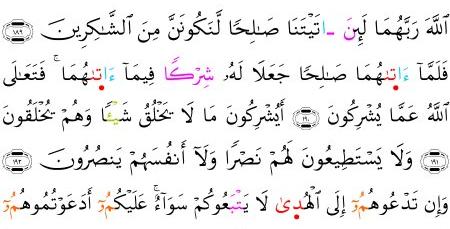 ٱللَّهَ رَبَّهُمَا لَئِنۡ ءَاتَيۡتَنَا صَٰلِحٗا لَّنَكُونَنَّ مِنَ ٱلشَّٰكِرِينَ ١٨٩
فَلَمَّآ ءَاتَىٰهُمَا صَٰلِحٗا جَعَلَا لَهُۥ شِرۡكٗا فِيمَآ ءَاتَىٰهُمَاۚ فَتَعَٰلَى
ٱللَّهُ عَمَّا يُشۡرِكُونَ ١٩٠ أَيُشۡرِكُونَ مَا لَا يَخۡلُقُ شَيۡـٔٗا وَهُمۡ يُخۡلَقُونَ
١٩١ وَلَا يَسۡتَطِيعُونَ لَهُمۡ نَصۡرٗا وَلَآ أَنفُسَهُمۡ يَنصُرُونَ ١٩٢
وَإِن تَدۡعُوهُمُۥٓ إِلَى ٱلۡهُدَىٰ لَا يَتۡبَعُوكُمۡ سَوَآءٌ عَلَيۡكُمُۥٓ أَدَعَوۡتُمُوهُمُۥٓ